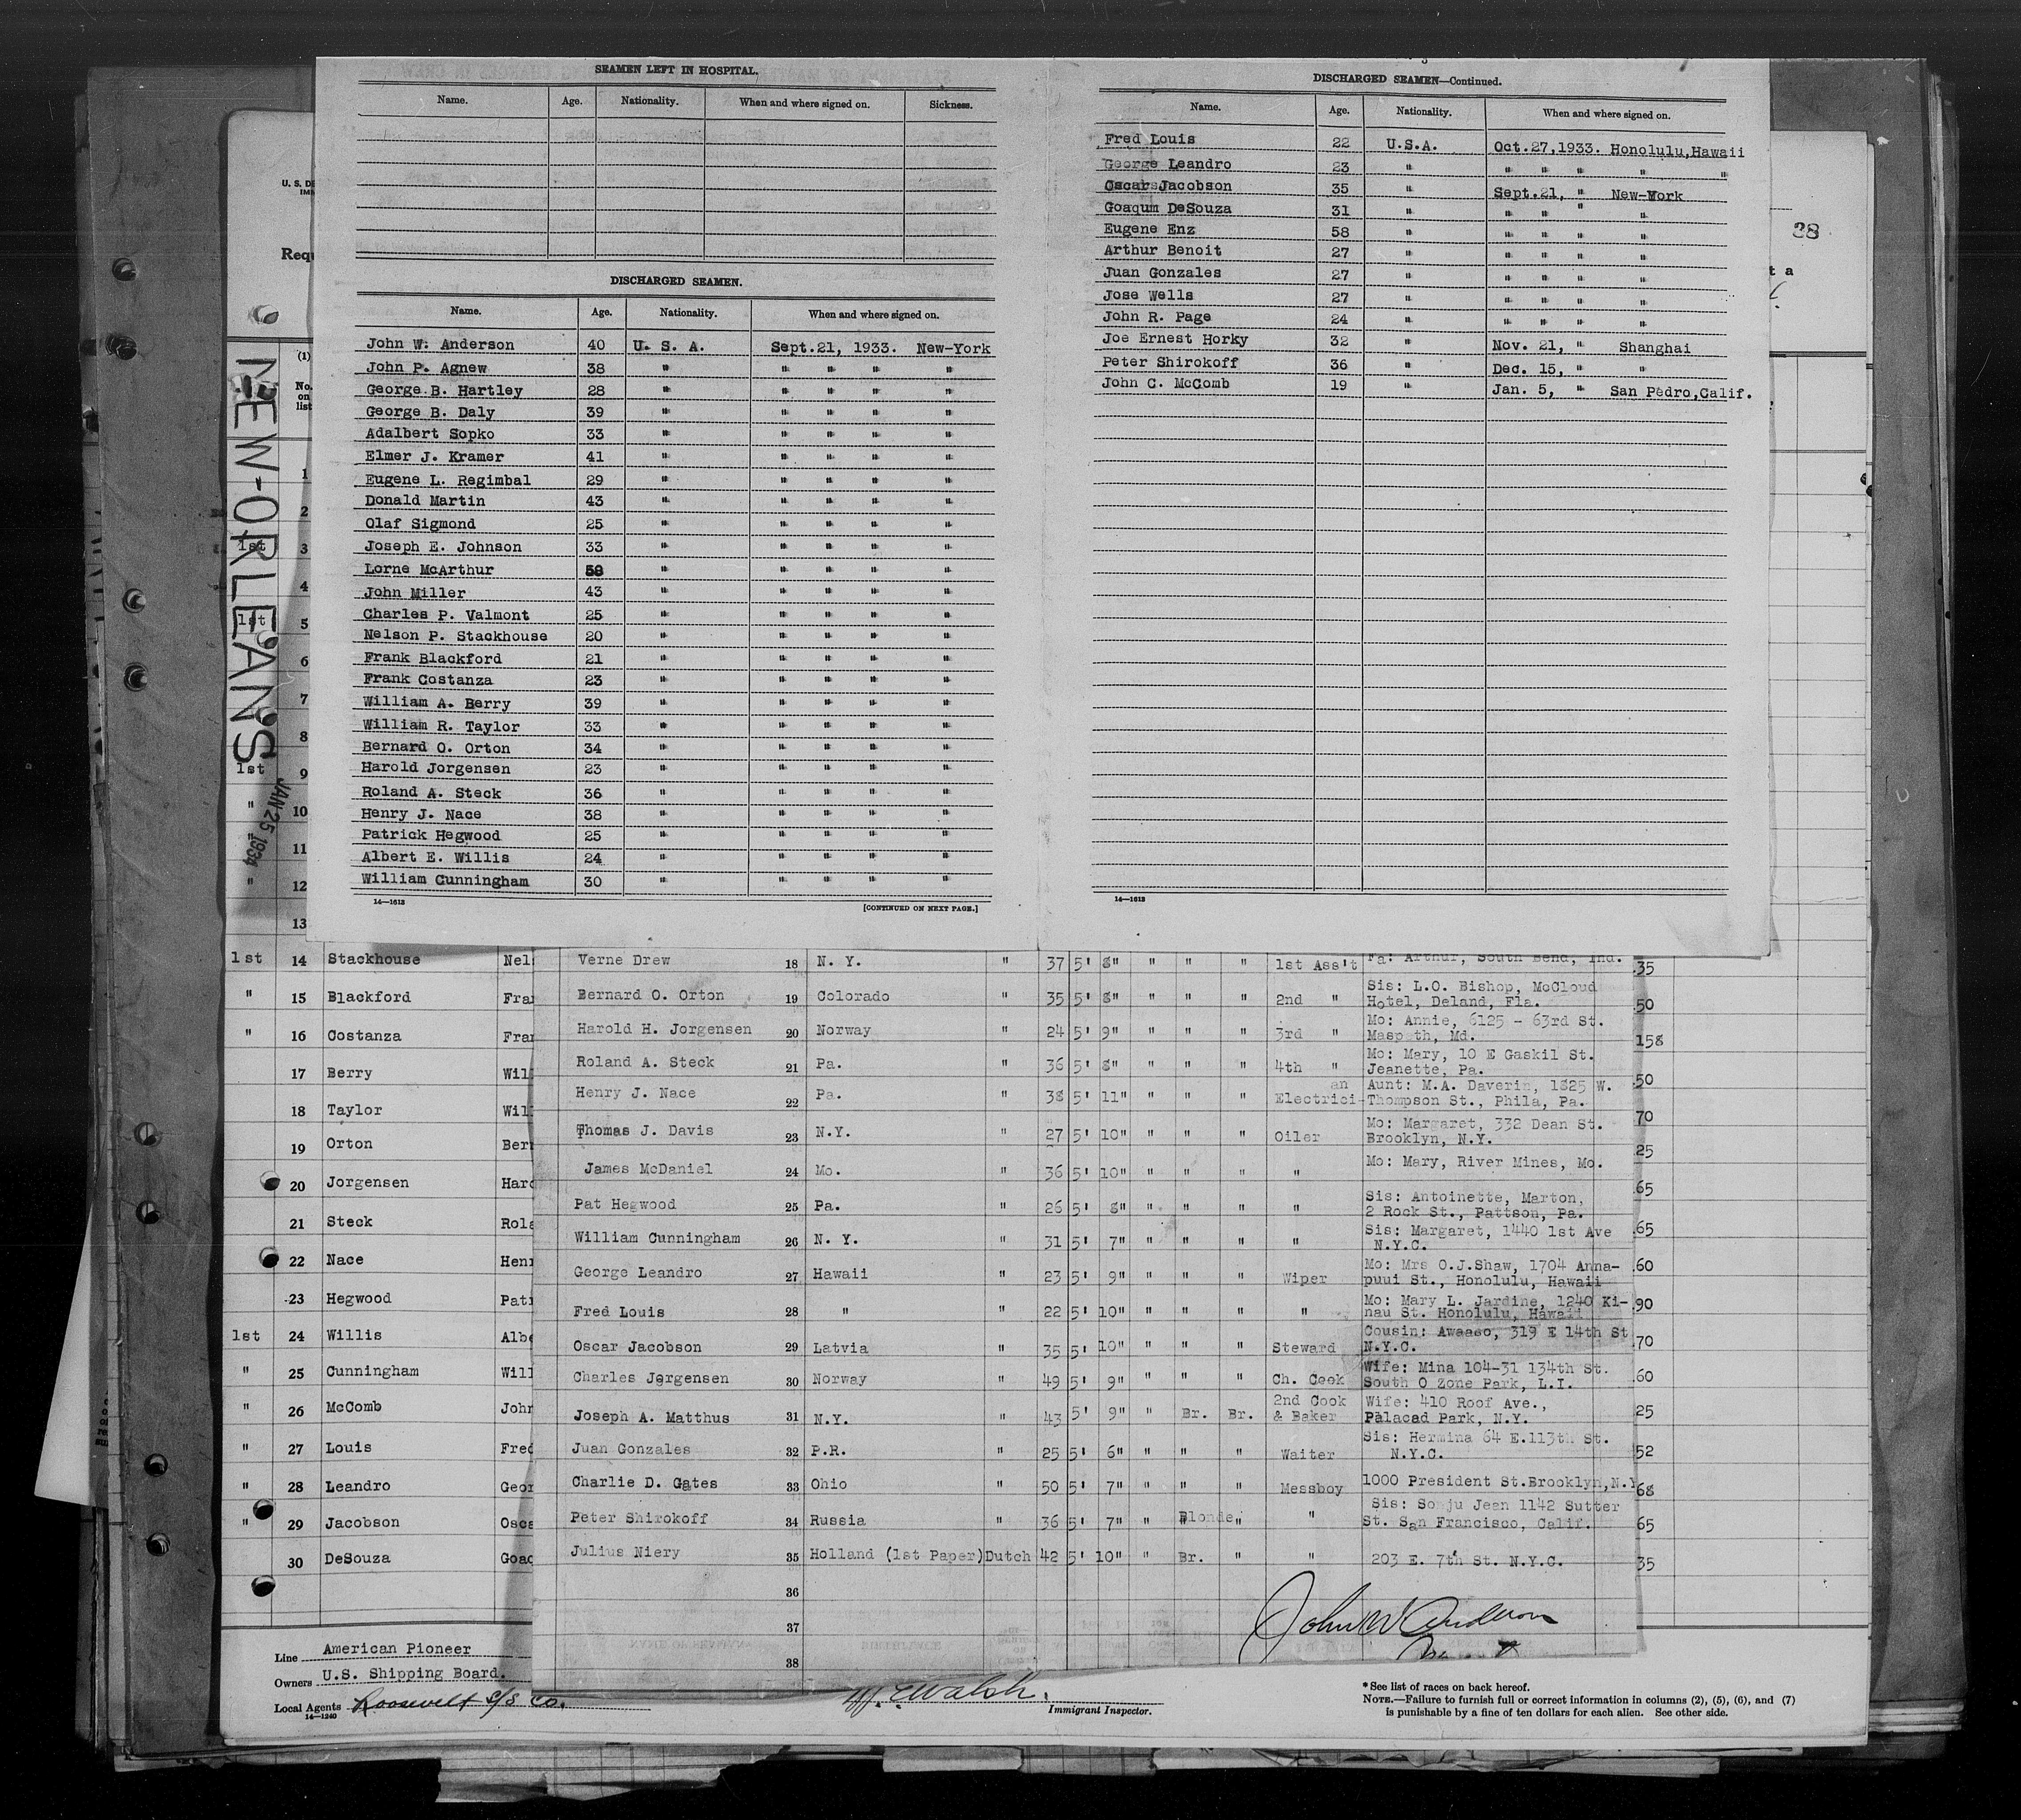 SEAMEN LEFT IN HOSPITAL.
Name. Age. Nationality. When and where signed on. Sickness.
DISCHARGED SEAMEN.
Name. Age. Nationality. When and where signed on.
John W. Anderson 40 U. S. A. Sept.21, 1933. New-York
John P. Agnew 38 " " " " "
George B. Hartley 28 " " " " "
George B. Daly 39 " " " " "
Adalbert Sopko 33 " " " " "
Elmer J. Kramer 41 " " " " "
Eugene L. Regimbal 29 " " " " "
Donald Martin 43 " " " " "
Olaf Sigmond 25 " " " " "
Joseph E. Johnson 33 " " " " "
Lorne McArthur 58 " " " " "
John Miller 43 " " " " "
Charles P. Valmont 25 " " " " "
Nelson P. Stackhouse 20 " " " " "
Frank Blackford 21 " " " " "
Frank Costanza 23 " " " " "
William A. Berry 39 " " " " "
William R. Taylor 33 " " " " "
Bernard O. Orton 34 " " " " "
Harold Jorgensen 23 " " " " "
Roland A. Steck 36 " " " " "
Henry J. Nace 38 " " " " "
Patrick Hegwood 25 " " " " "
Albert E. Willis 24 " " " " "
William Cunningham 30 " " " " "
14—1613 [CONTINUED ON NEXT PAGE.]
DISCHARGED SEAMEN—Continued.
Name. Age. Nationality. When and where signed on.
Fred Louis 22 U.S.A. Oct.27,1933. Honolulu,Hawaii
George Leandro 23 " " " " " "
Oscar Jacobson 35 " Sept.21, " New-York
Goaqum DeSouza 31 " " " " "
Eugene Enz 58 " " " " "
Arthur Benoit 27 " " " " "
Juan Gonzales 27 " " " " "
Jose Wells 27 " " " " "
John R. Page 24 " " " " "
Joe Ernest Horky 32 " Nov. 21, " Shanghai
Peter Shirokoff 36 " Dec. 15, " "
John C. McComb 19 " Jan. 5, " San Pedro,Calif.
14—1613
38
U. S. DE
IMM
Requ
t a
NEW-ORLEANS
JAN 25 1934
(1)
No.
on
list
1
2
1st 3
4
1st 5
6
7
8
1st 9
" 10
" 11
" 12
13
1st 14 Stackhouse Nel
" 15 Blackford Fra
" 16 Costanza Fra
17 Berry Wil
18 Taylor Wil
19 Orton Ber
20 Jorgensen Har
21 Steck Rola
22 Nace Hen
23 Hegwood Pat
1st 24 Willis Albe
" 25 Cunningham Will
" 26 McComb John
" 27 Louis Fred
" 28 Leandro Geor
" 29 Jacobson Osca
30 DeSouza Goaq
Verne Drew 18 N. Y. " 37 5' 8" " " " 1st Ass't Fa: Arthur, South Bend, Ind. 35
Bernard O. Orton 19 Colorado " 35 5' 8" " " " 2nd " Sis: L.O. Bishop, McCloud
Hotel, Deland, Fla. 50
Harold H. Jorgensen 20 Norway " 24 5' 9" " " " 3rd " Mo: Annie, 6125 - 63rd St.
Masp th, Md. 158
Roland A. Steck 21 Pa. " 36 5' 8" " " " 4th " Mo: Mary, 10 E Gaskil St.
Jeanette, Pa. 50
Henry J. Nace 22 Pa. " 38 5' 11" " " " Electrici-an Aunt: M.A. Daverin, 1825 W.
Thompson St., Phila, Pa. 70
Thomas J. Davis 23 N.Y. " 27 5' 10" " " " Oiler Mo: Margaret, 332 Dean St.
Brooklyn, N.Y. 25
James McDaniel 24 Mo. " 36 5' 10" " " " " Mo: Mary, River Mines, Mo. 65
Pat Hegwood 25 Pa. " 26 5' 8" " " " " Sis: Antoinette, Marton,
2 Rock St., Pattson, Pa. 65
William Cunningham 26 N. Y. " 31 5' 7" " " " " Sis: Margaret, 1440 1st Ave
N.Y.C. 60
George Leandro 27 Hawaii " 23 5' 9" " " " Wiper Mo: Mrs O.J.Shaw, 1704 Anna-
puui St., Honolulu, Hawaii 90
Fred Louis 28 " " 22 5' 10" " " " " Mo: Mary L. Jardine, 1240 Ki-
nau St. Honolulu, Hawaii
Oscar Jacobson 29 Latvia " 35 5' 10" " " " Steward Cousin: Awaaso, 319 E 14th St
N.Y.C. 70
Charles Jorgensen 30 Norway " 49 5' 9" " " " Ch. Cook Wife: Mina 104-31 134th St.
South O Zone Park, L.I. 60
Joseph A. Matthus 31 N.Y. " 43 5' 9" " Br. Br. 2nd Cook & Baker Wife: 410 Roof Ave.,
Palacad Park, N.Y. 25
Juan Gonzales 32 P.R. " 25 5' 6" " " " Waiter Sis: Hermina 64 E.113th St.
N.Y.C. 52
Charlie D. Gates 33 Ohio " 50 5' 7" " " " Messboy 1000 President St.Brooklyn,N.Y 68
Peter Shirokoff 34 Russia " 36 5' 7" " Blonde " " Sis: Jean 1142 Sutter
St. San Francisco, Calif. 65
Julius Niery 35 Holland (1st Paper) Dutch 42 5' 10" " Br. " " 203 E. 7th St. N.Y.C. 35
36
37
38
John W Anderson
Line American Pioneer
Owners U.S. Shipping Board.
Local Agents Roosevelt S/S Co.
14—1240
Walsh.
Immigrant Inspector.
*See list of races on back hereof.
NOTE.—Failure to furnish full or correct information in columns (2), (5), (6), and (7)
is punishable by a fine of ten dollars for each alien. See other side.